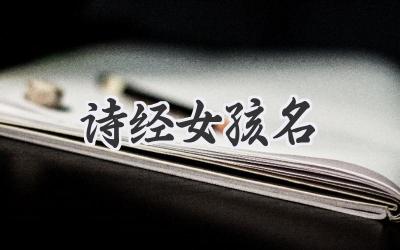 诗经女孩名